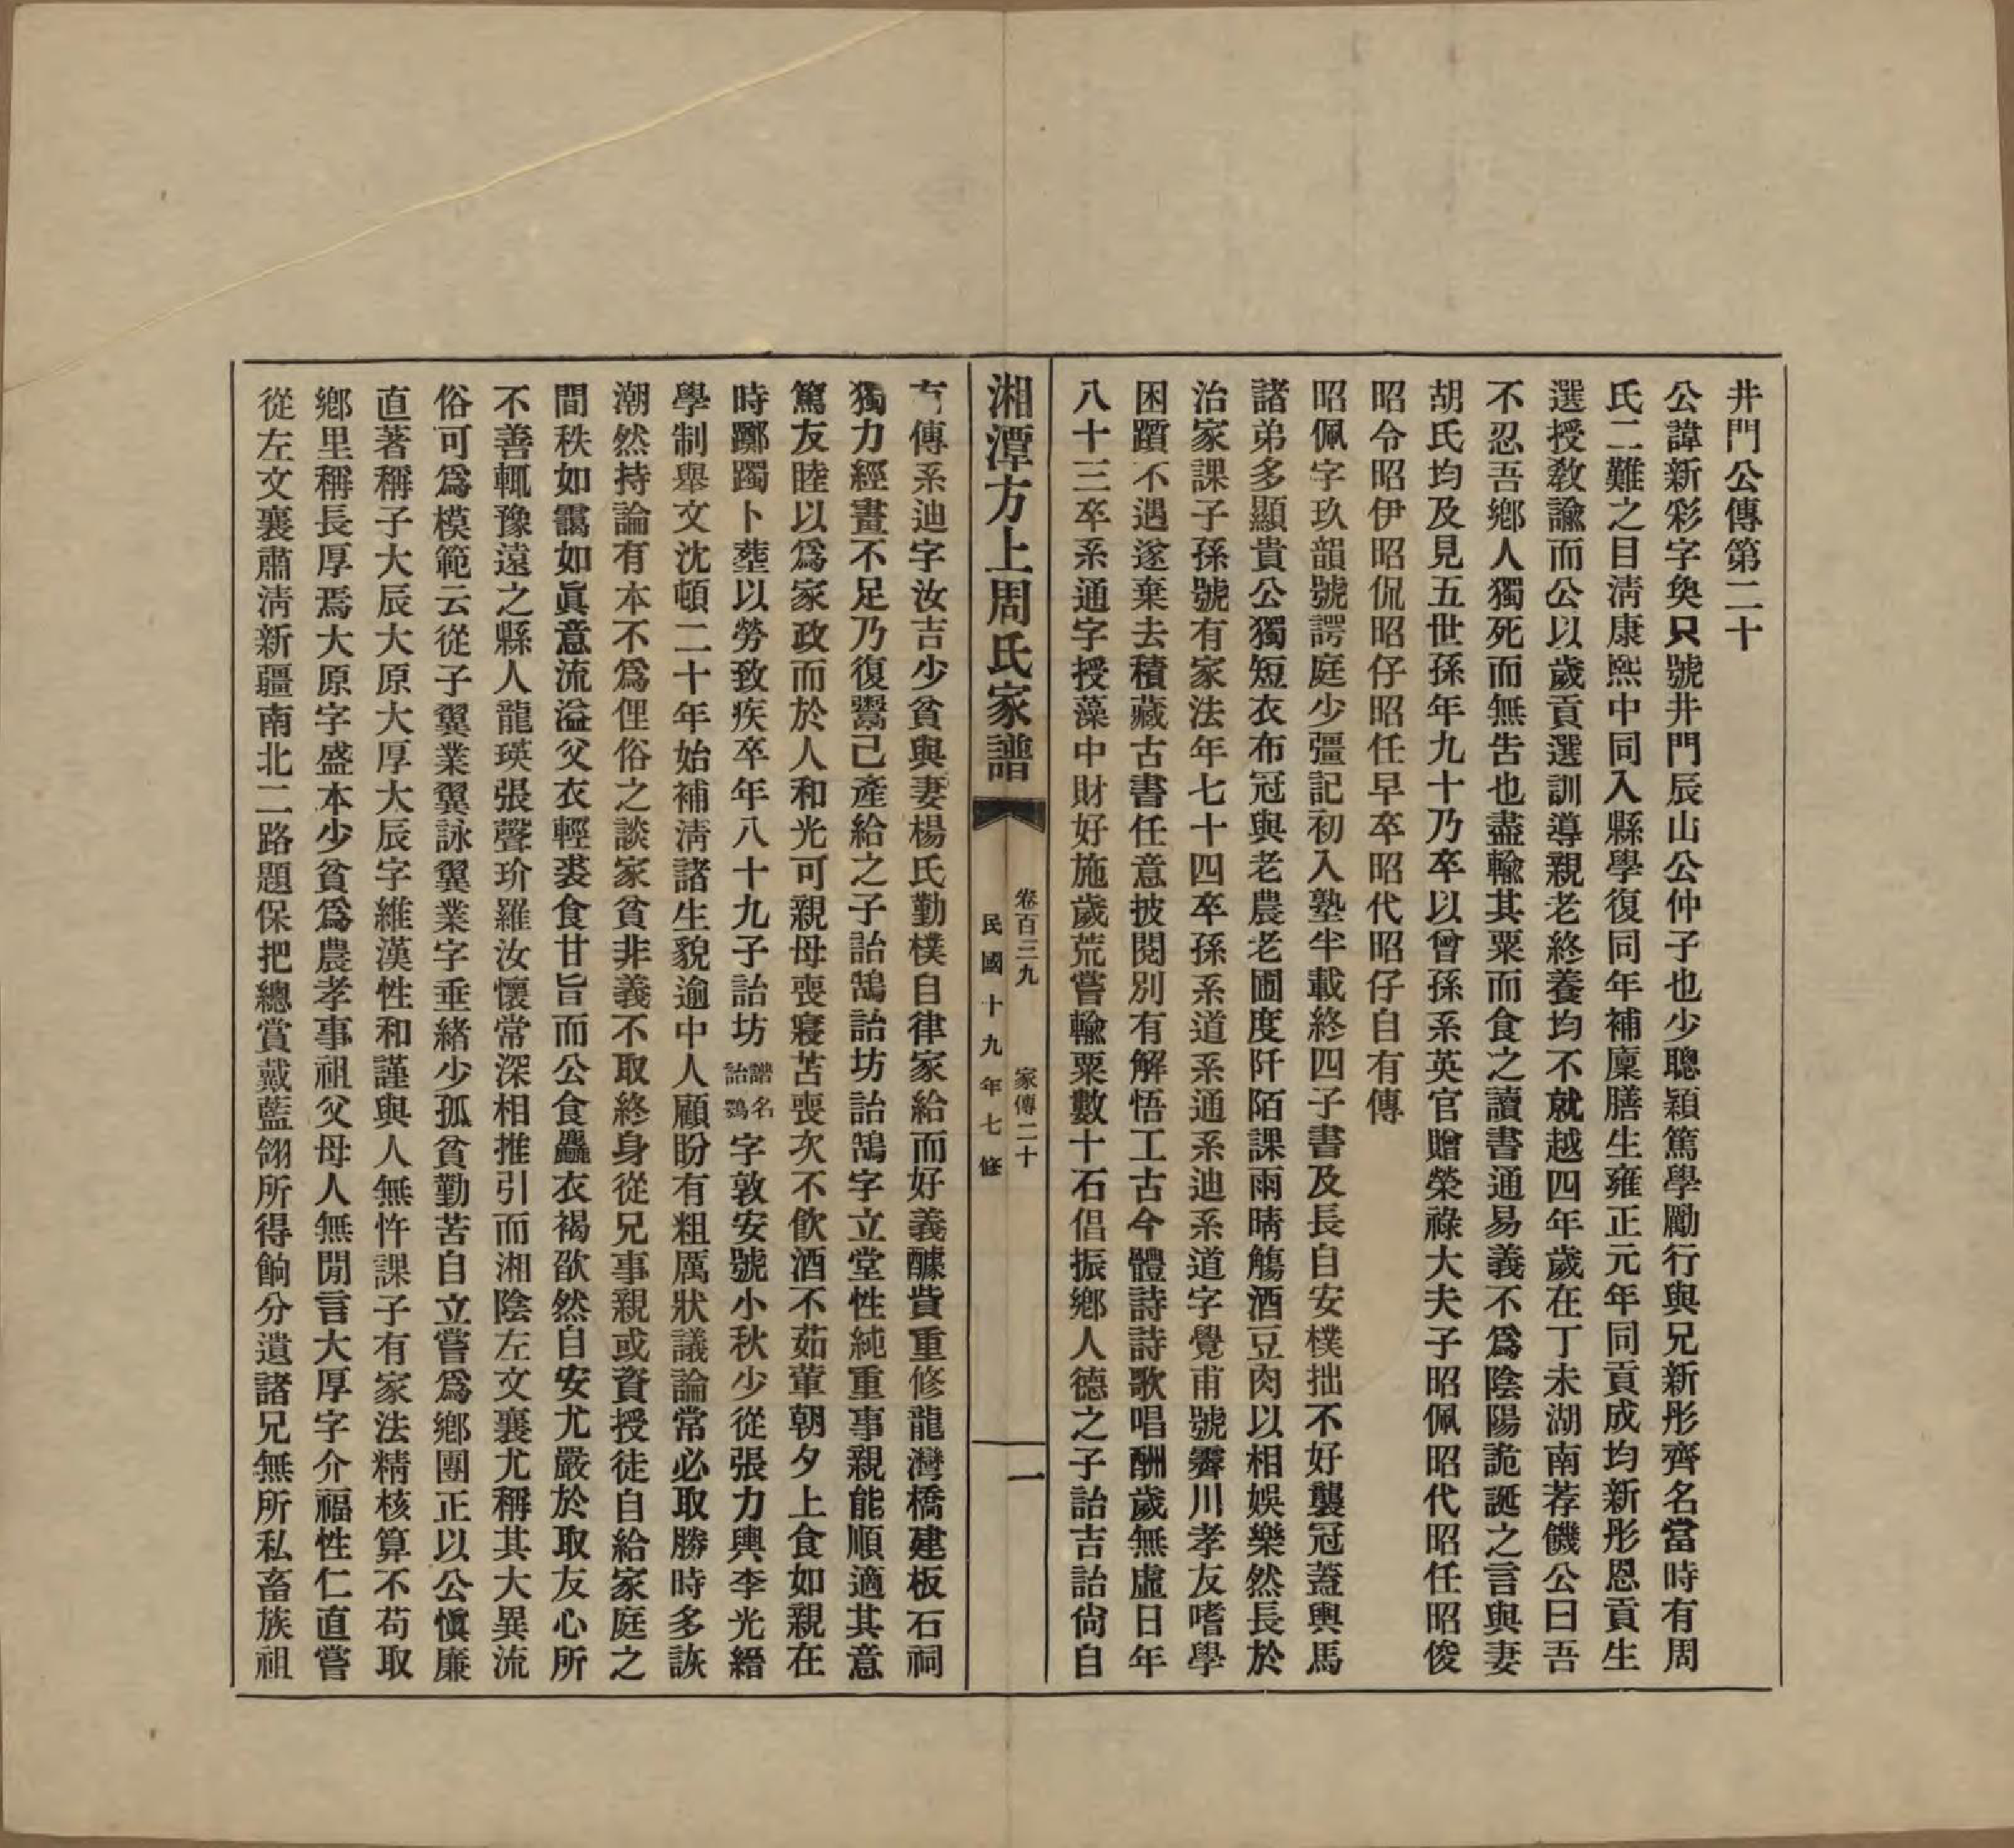 井門公傳第二十
公諱新彩字奐只號井門辰山公仲子也少聰穎篤學勵行與兄新彤齊名當時有周
氏二難之目淸康熙中同入縣學復同年補廩膳生雍正元年同貢成均新彤恩貢生
選授敎諭而公以歲貢選訓導親老終養均不就越四年歲在丁未湖南荐饑公曰吾
不忍吾鄕人獨死而無吿也盡輸其粟而食之讀書通易義不爲陰陽詭誕之言與妻
胡氏均及見五世孫年九十乃卒以曾孫系英官贈榮祿大夫子昭佩昭代昭任昭俊
昭令昭伊昭侃昭仔昭任早卒昭代昭仔自有傳
昭佩字玖韻號諤庭少彊記初入塾半載終四子書及長自安樸拙不好襲冠蓋輿馬
諸弟多顯貴公獨短衣布冠與老農老圃度阡陌課雨晴觴酒豆肉以相娛樂然長於
治家課子孫號有家法年七十四卒孫系道系通系迪系道字覺甫號霽川孝友嗜學
困躓不遇遂棄去積藏古書任意披閱別有解悟工古今體詩詩歌唱酬歲無虛日年
八十三卒系通字授藻中財好施歲荒嘗輸粟數十石倡振鄕人德之子詒吉詒尙自
湘潭方上周氏家譜
卷百三九　家傳二十
民國十九年七修
一
有傳系迪字汝吉少貧與妻楊氏勤樸自律家給而好義醵貲重修龍灣橋建板石祠
獨力經畫不足乃復鬻己產給之子詒鵠詒坊詒鵠字立堂性純重事親能順適其意
篤友睦以爲家政而於人和光可親母喪寢苫喪次不飮酒不茹葷朝夕上食如親在
時躑躅卜葬以勞致疾卒年八十九子詒坊譜名詒鷃字敦安號小秋少從張力輿李光縉
學制舉文沈頓二十年始補淸諸生貌逾中人顧盼有粗厲狀議論常必取勝時多詼
潮然持論有本不爲俚俗之談家貧非義不取終身從兄事親或資授徒自給家庭之
間秩如靄如眞意流溢父衣輕裘食甘旨而公食麤衣褐歆然自安尤嚴於取友心所
不善輒豫遠之縣人龍瑛張聲玠羅汝懷常深相推引而湘陰左文襄尤稱其大異流
俗可爲模範云從子翼業翼詠翼業字垂緒少孤貧勤苦自立嘗爲鄕團正以公愼廉
直著稱子大辰大原大厚大辰字維漢性和謹與人無忤課子有家法精核算不苟取
鄕里稱長厚焉大原字盛本少貧爲農孝事祖父母人無閒言大厚字介福性仁直嘗
從左文襄肅淸新疆南北二路題保把總賞戴藍翎所得餉分遺諸兄無所私畜族祖